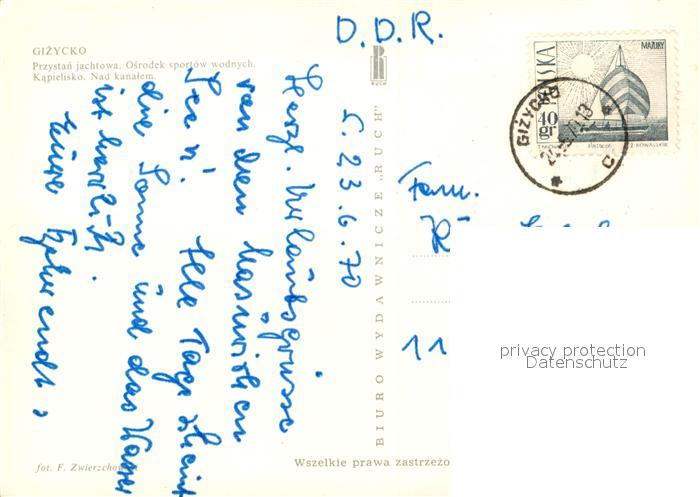 GIŻYCKO
Przystań jachtowa. Ośrodek sportów wodnych.
Kąpielisko. Nad kanałem.
D.D.R.
MAZURY
40
gr
GIŻYCKO
C
23.6.70
Herzl. Urlaubsgrüsse
von den Masurischen
Seen! Alle Tage scheint
die Sonne und das Wasser
ist herrlich.
Eure
Fam.
11
BIURO WYDAWNICZE „RUCH”
privacy protection
Datenschutz
fot. F. Zwierzcho
Wszelkie prawa zastrzeżo